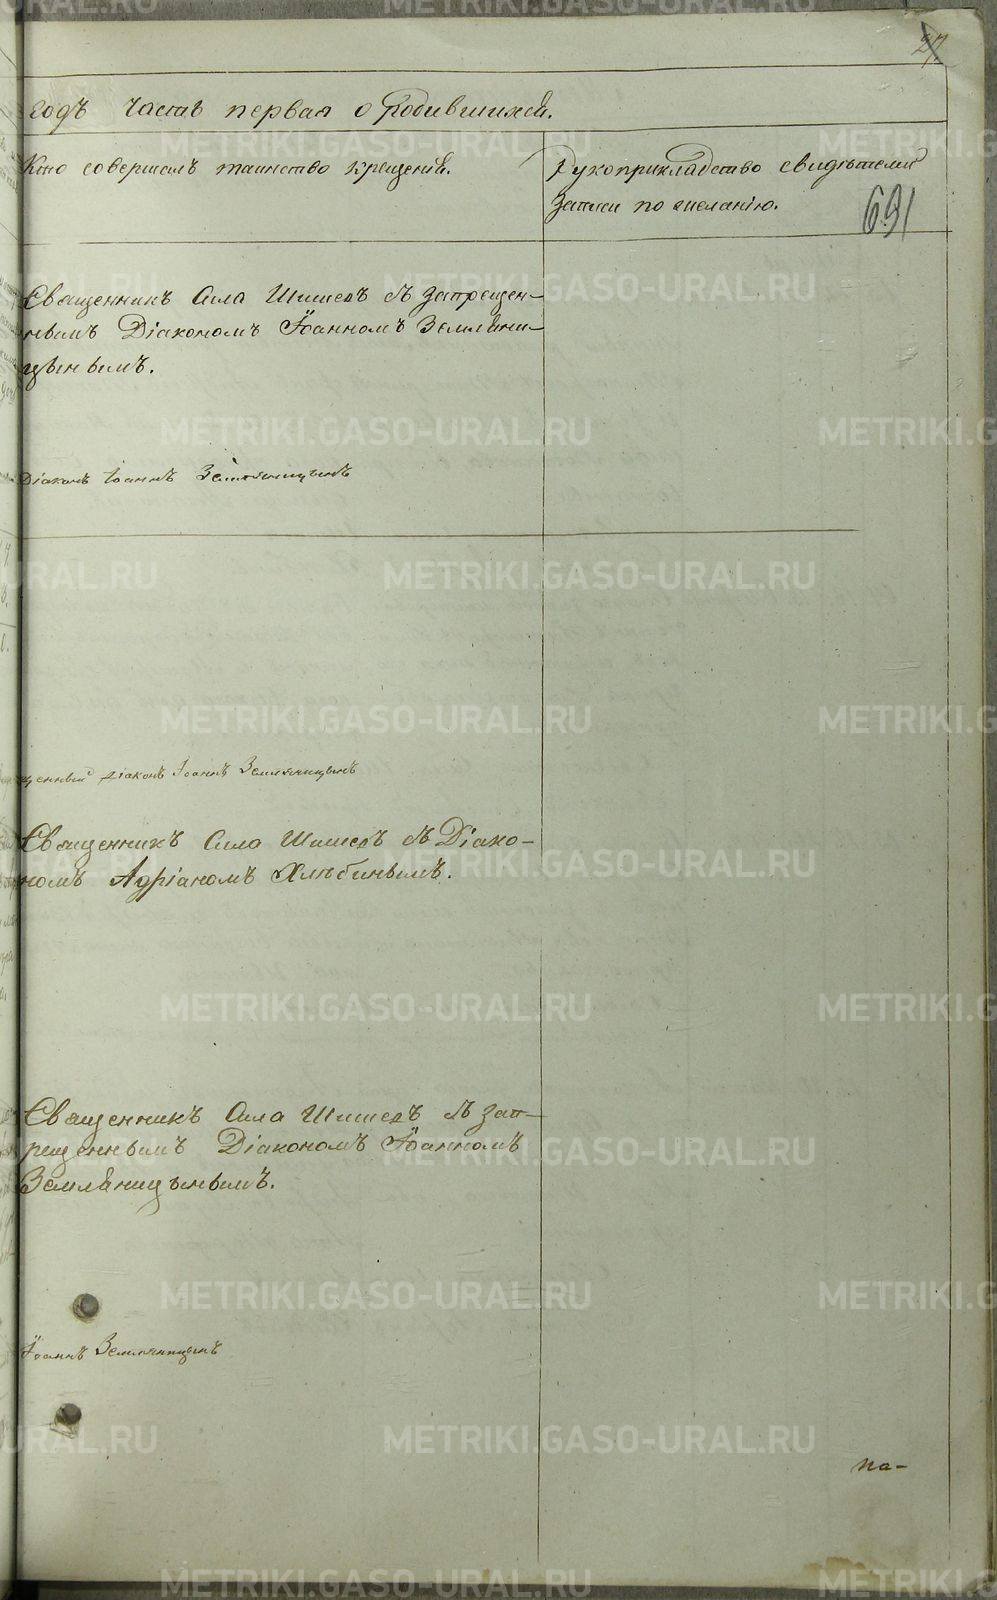 27
годъ часть первая о родившихся.
Кто совершалъ таинство крещенія.
Рукоприкладство свидѣтелей
записи по желанію.
691
Священникъ Сила Шишевъ съ запрещен-
нымъ Діакономъ Іоанномъ Земляни-
цынымъ.
Діаконъ Іоаннъ Земляницынъ
щенный діаконъ Іоаннъ Земляницынъ
Священникъ Сила Шишевъ съ Діако-
номъ Адріаномъ Хлѣбинымъ.
Священникъ Сила Шишевъ съ зап-
рещеннымъ Діакономъ Іоанномъ
Земляницынымъ.
Іоаннъ Земляницынъ
на-
METRIKI.GASO-URAL.RU